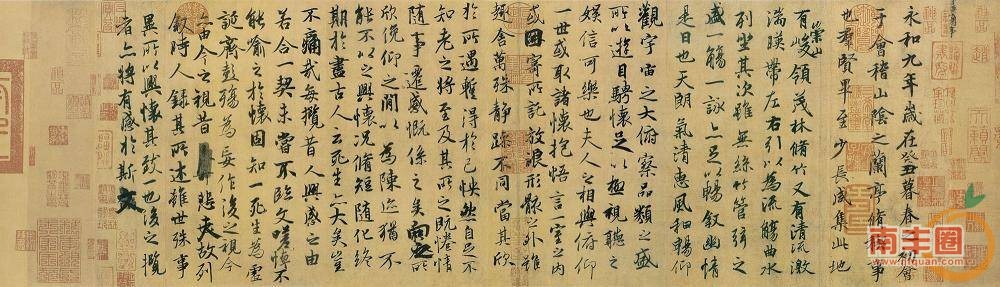 永和九年歲在癸丑暮春之初會
于會稽山陰之蘭亭脩稧事
也羣賢畢至少長咸集此地
有崇山峻領茂林脩竹又有清流激
湍暎帶左右引以為流觴曲水
列坐其次雖無絲竹管弦之
盛一觴一詠亦足以暢敘幽情
是日也天朗氣清惠風和暢仰
觀宇宙之大俯察品類之盛
所以遊目騁懷足以極視聽之
娛信可樂也夫人之相與俯仰
一世或取諸懷抱悟言一室之內
或因寄所託放浪形骸之外雖
趣舍萬殊靜躁不同當其欣
於所遇蹔得於己怏然自足不
知老之將至及其所之既惓情
隨事遷感慨係之矣向之所
欣俛仰之閒以為陳迹猶不
能不以之興懷況脩短隨化終
期於盡古人云死生亦大矣豈
不痛哉每攬昔人興感之由
若合一契未嘗不臨文嗟悼不
能喻之於懷固知一死生為虛
誕齊彭殤為妄作後之視今
亦由今之視昔悲夫故列
敘時人錄其所述雖世殊事
異所以興懷其致一也後之攬
者亦將有感於斯文
南丰圈
nfquan.com